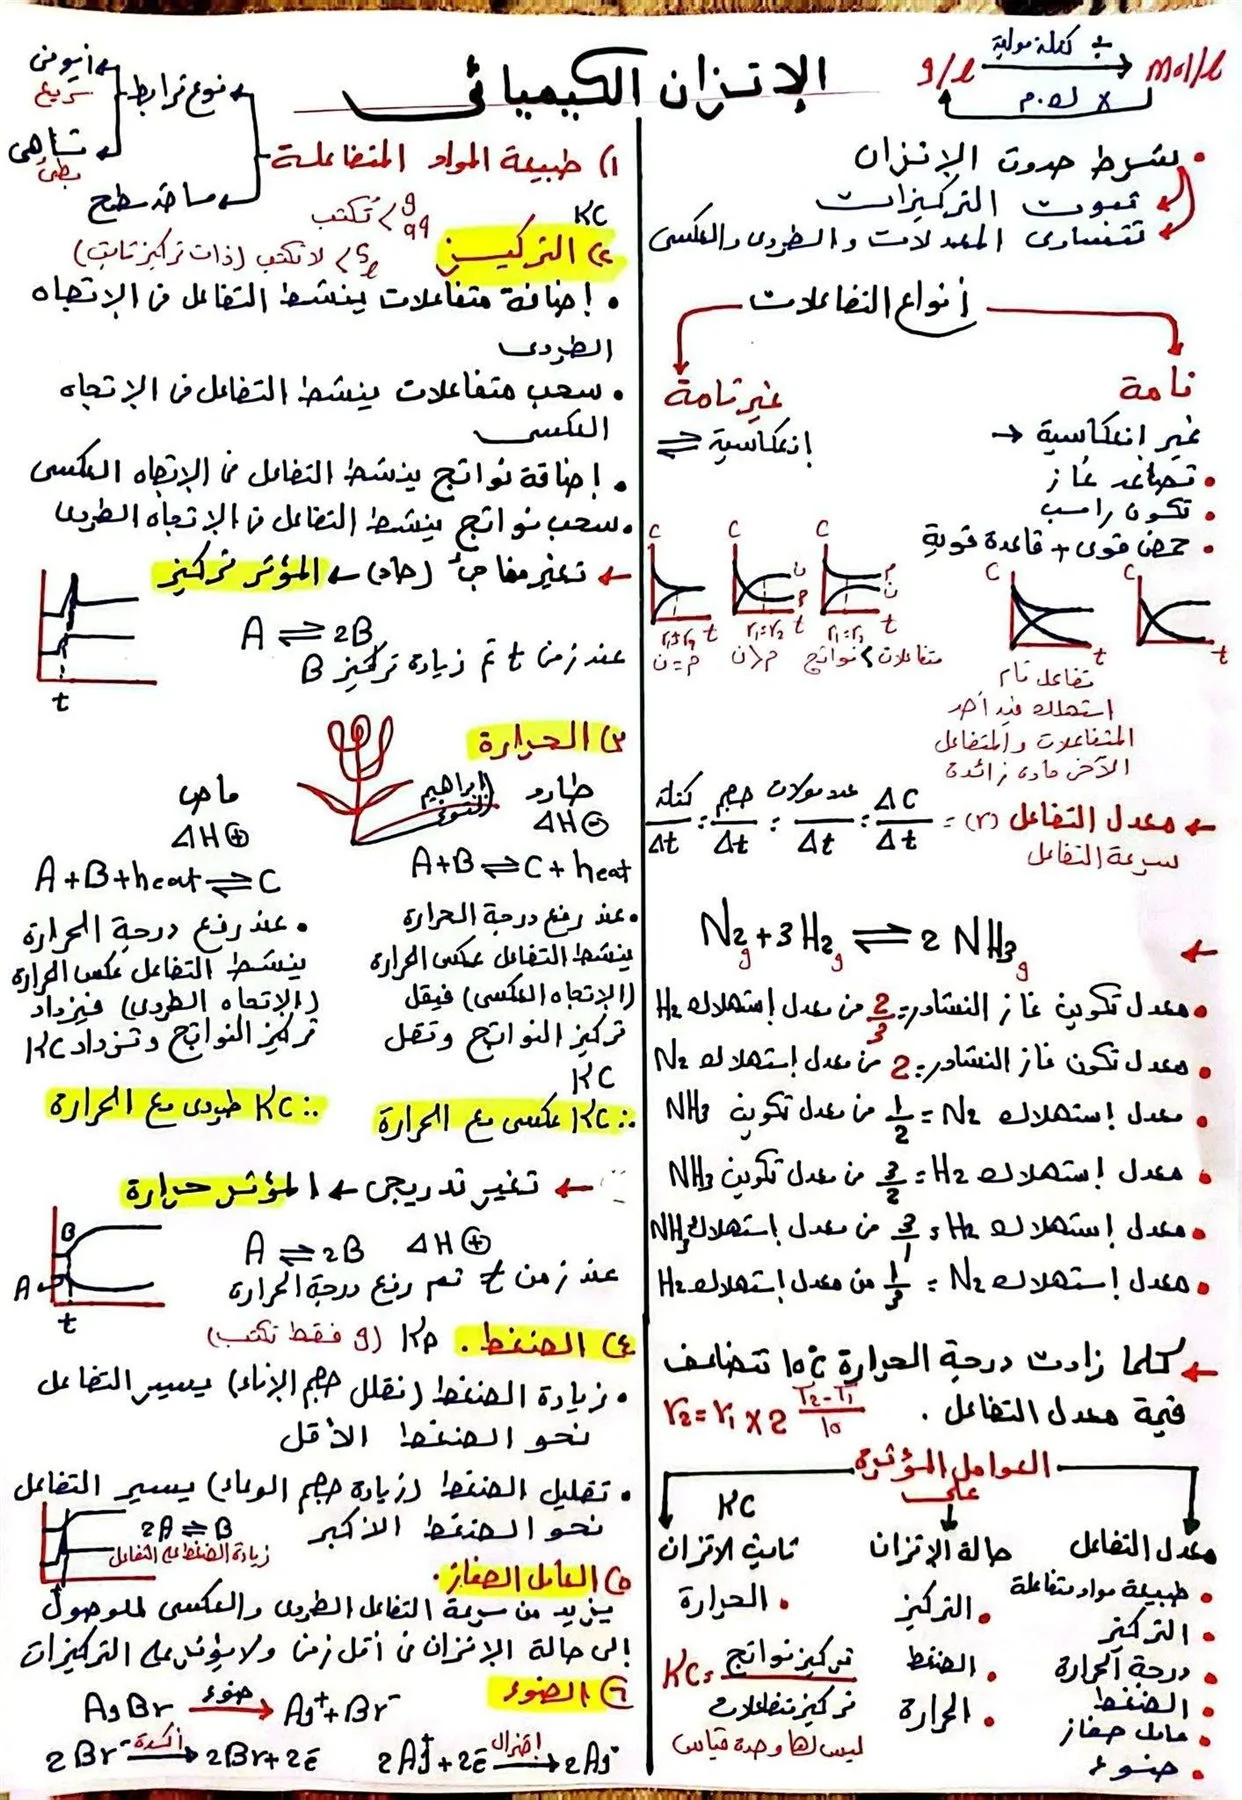 الإتزان الكيميائى
g/l
÷ كتلة مولية
mol/l
x ك.م
• شرط حدوث الإتزان
ثبوت التركيزات
تتساوى المعدلات والطردى والعكسى
أنواع التفاعلات
تامة
غير إنعكاسية →
• تصاعد غاز
• تكون راسب
• حمض قوى + قاعدة قوية
غير تامة
إنعكاسية ⇌
C C C
t t t
r₁=r₂ r₁=r₂ r₁=r₂
م = ن
ن > م
متفاعلات > نواتج
C C
t t
تفاعل تام
استهلك فيه أحد
المتفاعلات والمتفاعل
الآخر مادة زائدة
← معدل التفاعل (r) = ΔC/Δt = عدد مولات/Δt = حجم/Δt = كتلة/Δt
سرعة التفاعل
← N₂g + 3H₂g ⇌ 2NH₃g
• معدل تكوين غاز النشادر = 2/3 من معدل إستهلاك H₂
• معدل تكون غاز النشادر = 2 من معدل إستهلاك N₂
• معدل إستهلاك N₂ = 1/2 من معدل تكوين NH₃
• معدل إستهلاك H₂ = 3/2 من معدل تكوين NH₃
• معدل إستهلاك H₂ = 3/1 من معدل إستهلاك NH₃
• معدل إستهلاك N₂ = 1/3 من معدل إستهلاك H₂
← كلما زادت درجة الحرارة 10°C تتضاعف
قيمة معدل التفاعل. r₂ = r₁ x 2 T₂-T₁/10
العوامل المؤثرة
على
معدل التفاعل
• طبيعة مواد متفاعلة
• التركيز
• درجة الحرارة
• الضغط
• عامل حفاز
• ضوء
حالة الإتزان
• التركيز
• الضغط
• الحرارة
KC
ثابت الاتزان
• الحرارة
KC = تركيز نواتج / تركيز متفاعلات
ليس لها وحدة قياس
١) طبيعة المواد المتفاعلة
نوع ترابط
أيونى
سريع
تساهمى
بطئ
مساحة سطح
٢) التركيز
KC
g aq > تُكتب
s l > لا تكتب (ذات تركيز ثابت)
• إضافة متفاعلات ينشط التفاعل فى الإتجاه
الطردى
• سحب متفاعلات ينشط التفاعل فى الإتجاه
العكسى
• إضافة نواتج ينشط التفاعل فى الإتجاه العكسى
• سحب نواتج ينشط التفاعل فى الإتجاه الطردى
← تغير مفاجئ (حاد) ← المؤثر تركيز
A ⇌ 2B
عند زمن t تم زيادة تركيز B
t
٣) الحرارة
إبراهيم
طارد
ΔH ⊖
A+B ⇌ C + heat
• عند رفع درجة الحرارة
ينشط التفاعل عكس الحرارة
(الإتجاه العكسى) فيقل
تركيز النواتج وتقل
KC
∴ KC عكسى مع الحرارة
ماص
ΔH ⊕
A+B+heat ⇌ C
• عند رفع درجة الحرارة
ينشط التفاعل عكس الحرارة
(الإتجاه الطردى) فيزداد
تركيز النواتج وتزداد KC
∴ KC طردى مع الحرارة
← تغير تدريجى ← المؤثر حرارة
A ⇌ 2B ΔH ⊕
عند زمن t تم رفع درجة الحرارة
B
A
t
٤) الضغط. Kp (g فقط تكتب)
• زيادة الضغط (نقلل حجم الإناء) يسير التفاعل
نحو الضغط الأقل
• تقليل الضغط (زيادة حجم الوعاء) يسير التفاعل
نحو الضغط الأكبر
2A ⇌ B
زيادة الضغط على التفاعل
٥) العامل الحفاز.
يزيد من سرعة التفاعل الطردى والعكسى للوصول
إلى حالة الإتزان فى أقل زمن ولا يؤثر على التركيزات
٦) الضوء
AgBr ضوء→ Ag⁺ + Br⁻
2Br⁻ أكسدة→ 2Br + 2e⁻
2Ag⁺ + 2e⁻ إختزال→ 2Ag